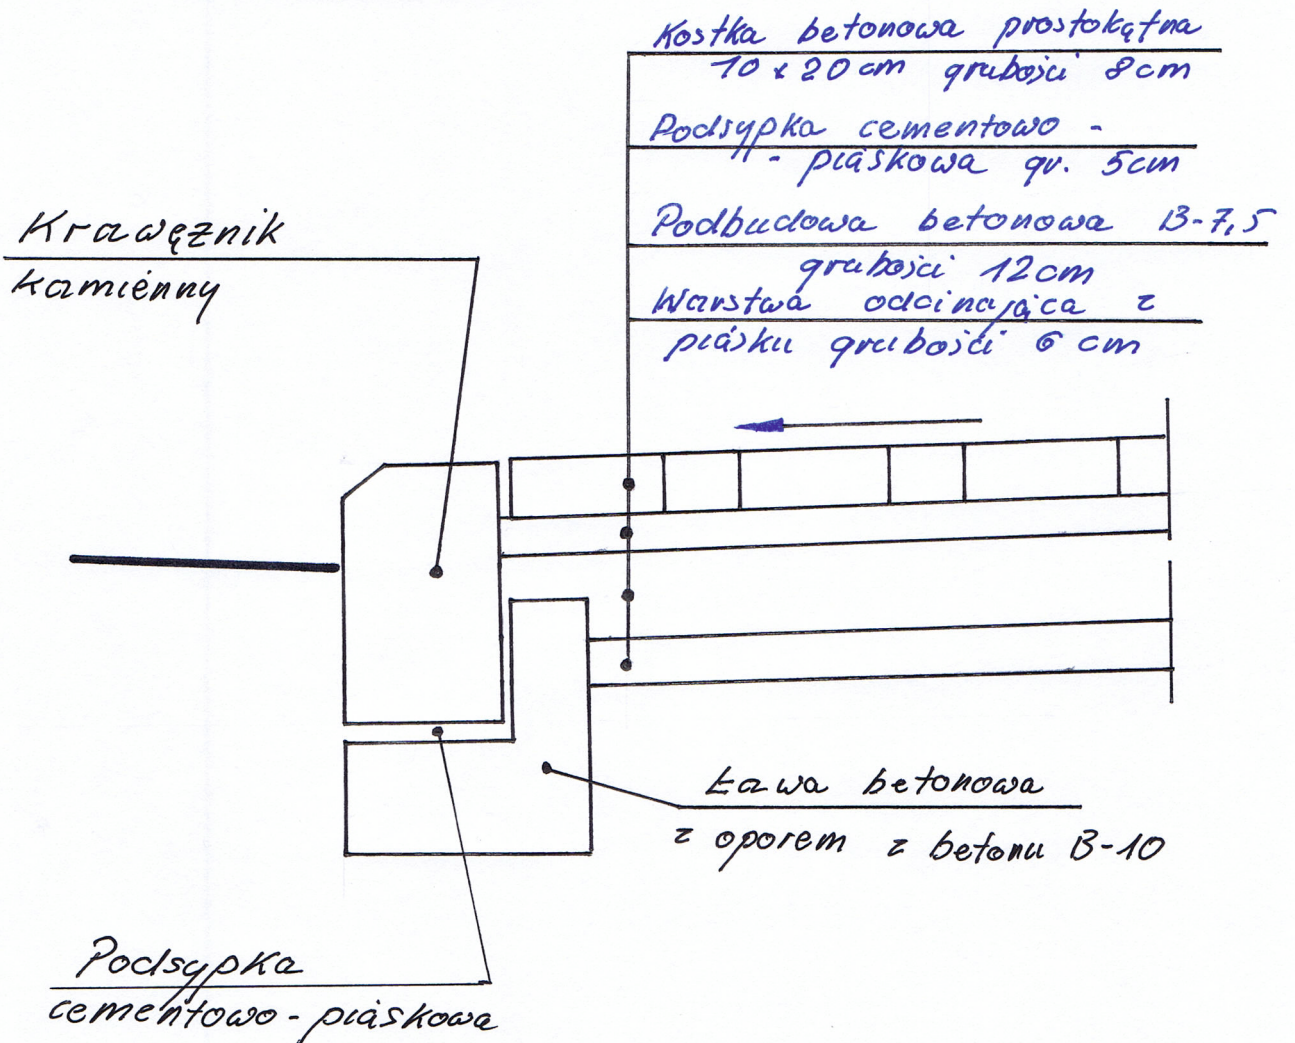 Kostka betonowa prostokątna
10 x 20 cm grubości 8 cm
Podsypka cementowo -
- piaskowa gr. 5 cm
Podbudowa betonowa B-7,5
grubości 12 cm
Warstwa odcinająca z
piasku grubości 6 cm
Krawężnik
kamienny
Ława betonowa
z oporem z betonu B-10
Podsypka
cementowo - piaskowa